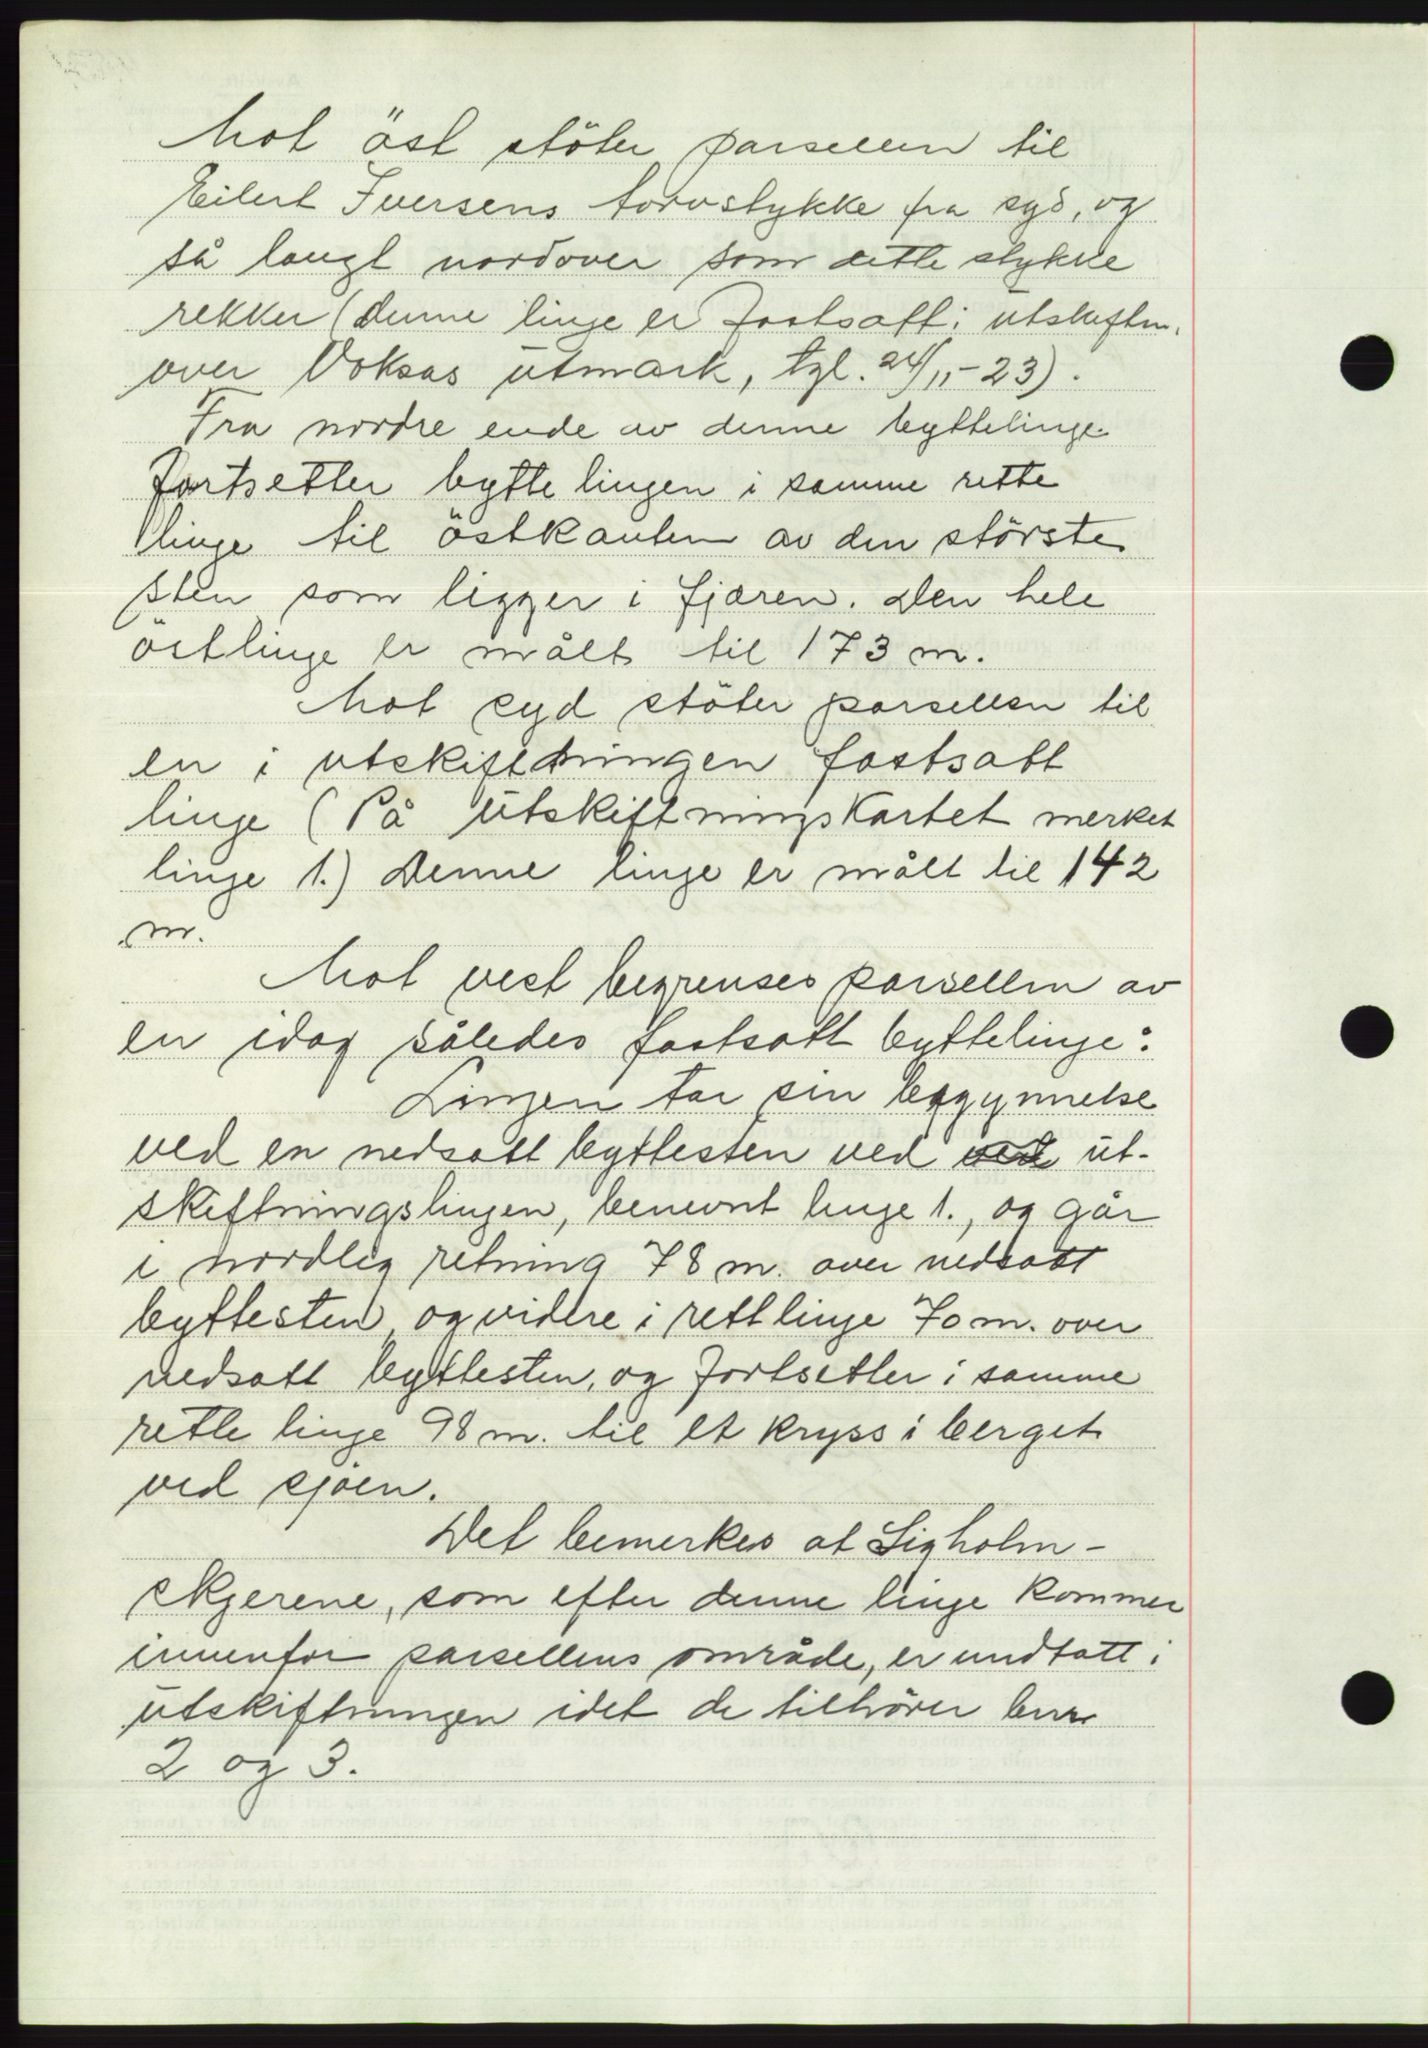 Mot öst stöter parsellen til
Eilert Iversens torvstykke fra syd, og
så langt nordover som dette stykke
rekker (denne linje er fastsatt i utskiftn.
over Voksas utmark, tgl. 24/11-23).
Fra nordre ende av denne byttelinje
fortsetter byttelingen i samme rette
linje til östkanten av den störste
sten som ligger i fjæren. Den hele
östlinje er målt til 173 m.
Mot syd stöter parsellen til
en i utskiftningen fastsatt
linje (På utskiftningskartet merket
linje 1.) Denne linje er målt til 142
m.
Mot vest begrenses parsellen av
en idag således fastsatt byttelinje:
Linjen tar sin beggynnelse
ved en nedsatt byttesten ved ved ut-
skiftningslinjen, benevnt linje 1., og går
i nordleg retning 78 m. over nedsatt
byttesten, og videre i rett linje 70 m. over
nedsatt byttesten, og fortsetter i samme
rette linje 98 m. til et kryss i berget
ved sjöen.
Det bemerkes at Sigholm-
skjerene, som efter denne linje kommer
innenfor parsellens område, er undtatt i
utskiftningen idet de tilhörer bnr
2 og 3.